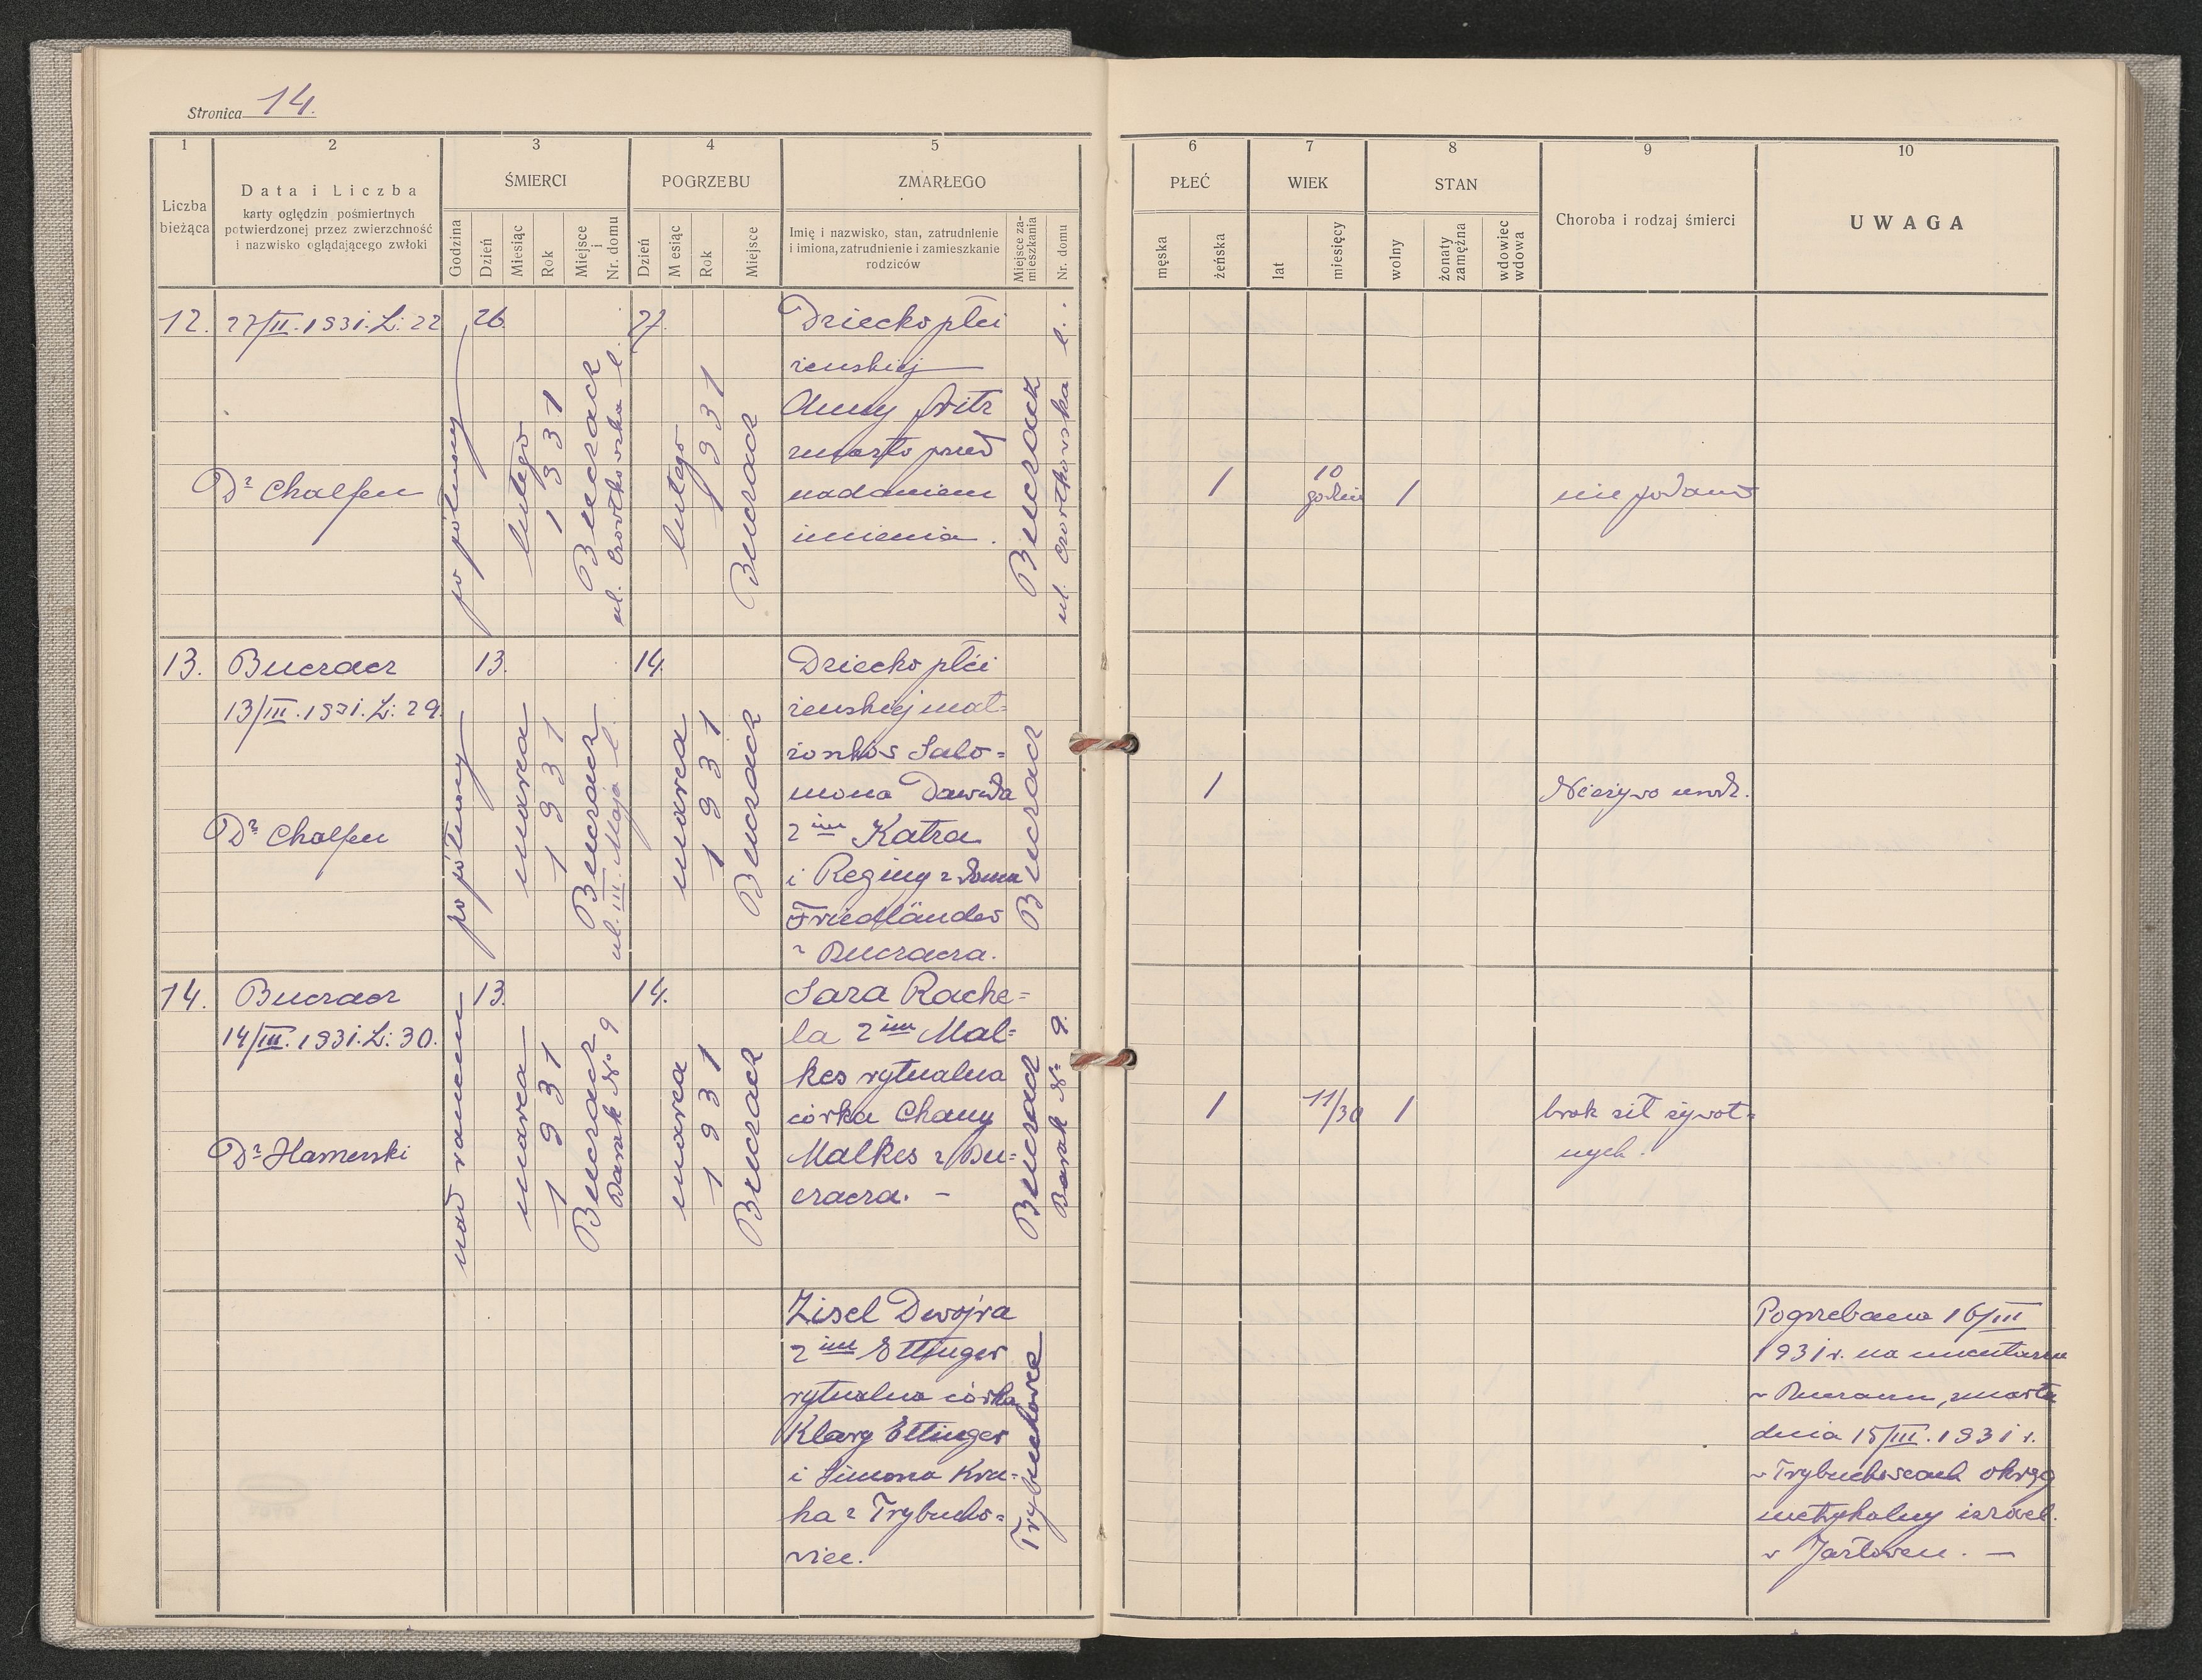 Stronica 14.
1 2 3 4 5 6 7 8 9 10
Liczba bieżąca
Data i Liczba
karty oględzin pośmiertnych
potwierdzonej przez zwierzchność
i nazwisko oglądającego zwłoki
ŚMIERCI
Godzina
Dzień
Miesiąc
Rok
Miejsce i Nr. domu
POGRZEBU
Dzień
Miesiąc
Rok
Miejsce
ZMARŁEGO
Imię i nazwisko, stan, zatrudnienie
i imiona, zatrudnienie i zamieszkanie
rodziców
Miejsce zamieszkania
Nr. domu
PŁEĆ
męska
żeńska
WIEK
lat
miesięcy
STAN
wolny
żonaty zamężna
wdowiec wdowa
Choroba i rodzaj śmierci
UWAGA
12.
27/II. 1931. L: 22
Dr Chalfen
po północy
26.
lutego
1931
Buczacz
ul. Czortkowska l.
27.
lutego
1931
Buczacz
Dziecko płci
żeńskiej
Anny
zmarło przed
nadaniem
imienia.
Buczacz
ul. Czortkowska l. . .
1
10
godzin
1
nie podano
13.
Buczacz
13/III. 1931. L: 29.
Dr Chalfen
po północy
13.
marca
1931
Buczacz
ul. III. Maja l.
14.
marca
1931
Buczacz
Dziecko płci
żeńskiej mał=
żonków Salo=
mona Dawida
2 im Katza
i Reginy z domu
Friedländer
z Buczacza.
Buczacz
1
Nieżywo urodz.
14.
Buczacz
14/III. 1931. L: 30.
Dr Hamerski
nad ranem
13.
marca
1931
Buczacz
Barak Nr 9
14.
marca
1931
Buczacz
Sara Rache=
la 2 im Mal=
kes rytualna
córka Chany
Malkes z Bu=
czacza. —
Buczacz
Barak Nr 9.
1
11/30
1
brak sił żywot=
nych.
Zisel Dwojra
2 im Ettinger
rytualna córka
Klary Ettinger
i Simona Kra=
ka z Trybucho=
wiec.
Trybuchowce
Pogrzebana 16/III
1931 r. na cmentarzu
w Buczaczu, zmarła
dnia 15/III. 1931 r.
w Trybuchowcach okręg
metrykalny izrael.
w Jazłowcu. —